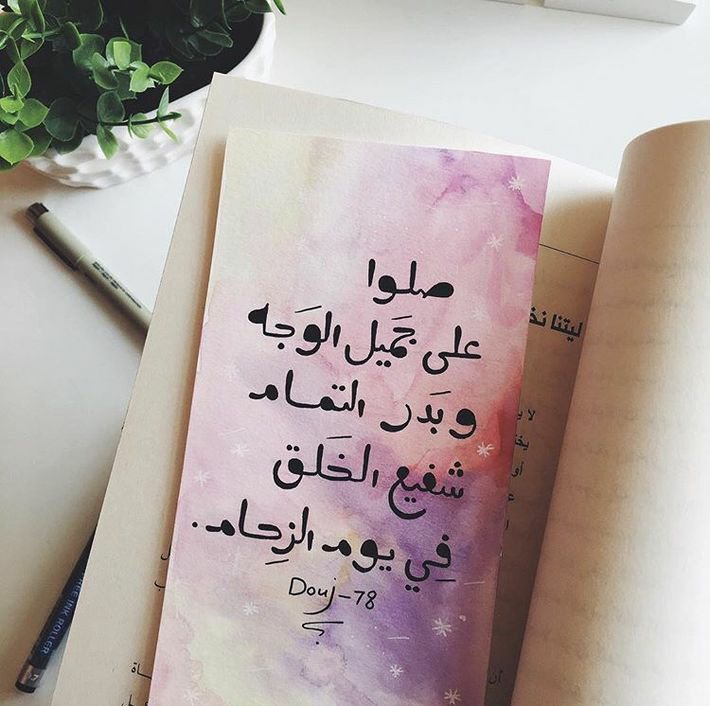 صلوا
على جَميل الوَجه
وبَدر التمام
شفيع الخَلق
فِي يوم الزِحام.
Douj-78
ليتنا نخ
ROLLER